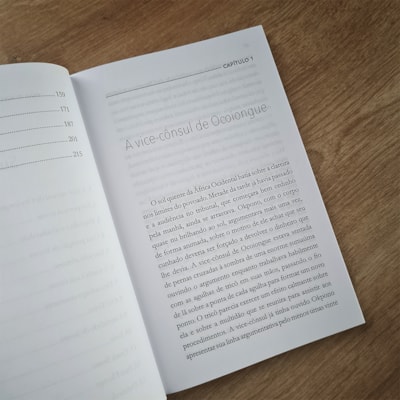 159
171
187
201
213
CAPÍTULO 1
A vice-cônsul de Ocoiongue
O sol quente da África Ocidental batia sobre a clareira
nos limites do povoado. Metade da tarde já havia passado
e a audiência no tribunal, que começara bem cedinho
pela manhã, ainda se arrastava. Okpono, com o corpo
quase nu brilhando ao sol, argumentava mais uma vez,
de forma animada, sobre o motivo de ele achar que seu
cunhado deveria ser forçado a devolver o dinheiro que
lhe devia. A vice-cônsul de Ocoiongue estava sentada
de pernas cruzadas à sombra de uma enorme sumaúma
ouvindo o argumento enquanto trabalhava habilmente
com as agulhas de tricô em suas mãos, puxando o fio
de lã sobre a ponta de cada agulha para formar um novo
ponto. O tricô parecia exercer um efeito calmante sobre
ela e sobre a multidão que se reunira para assistir aos
procedimentos. A vice-cônsul já tinha ouvido Okponio
apresentar sua linha argumentativa pelo menos umas vinte